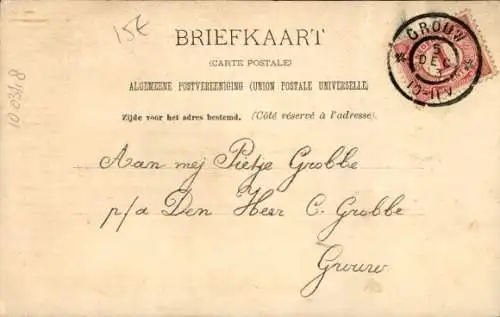 15€
BRIEFKAART
(CARTE POSTALE)
ALGEMEENE POSTVEREENIGING (UNION POSTALE UNIVERSELLE)
Zijde voor het adres bestemd. (Côté réservé à l'adresse).
GROUW
5
DEC
3
10-11V
100318
Aan mej Pietje Grobbe
p/a Den Heer C. Grobbe
Grouw